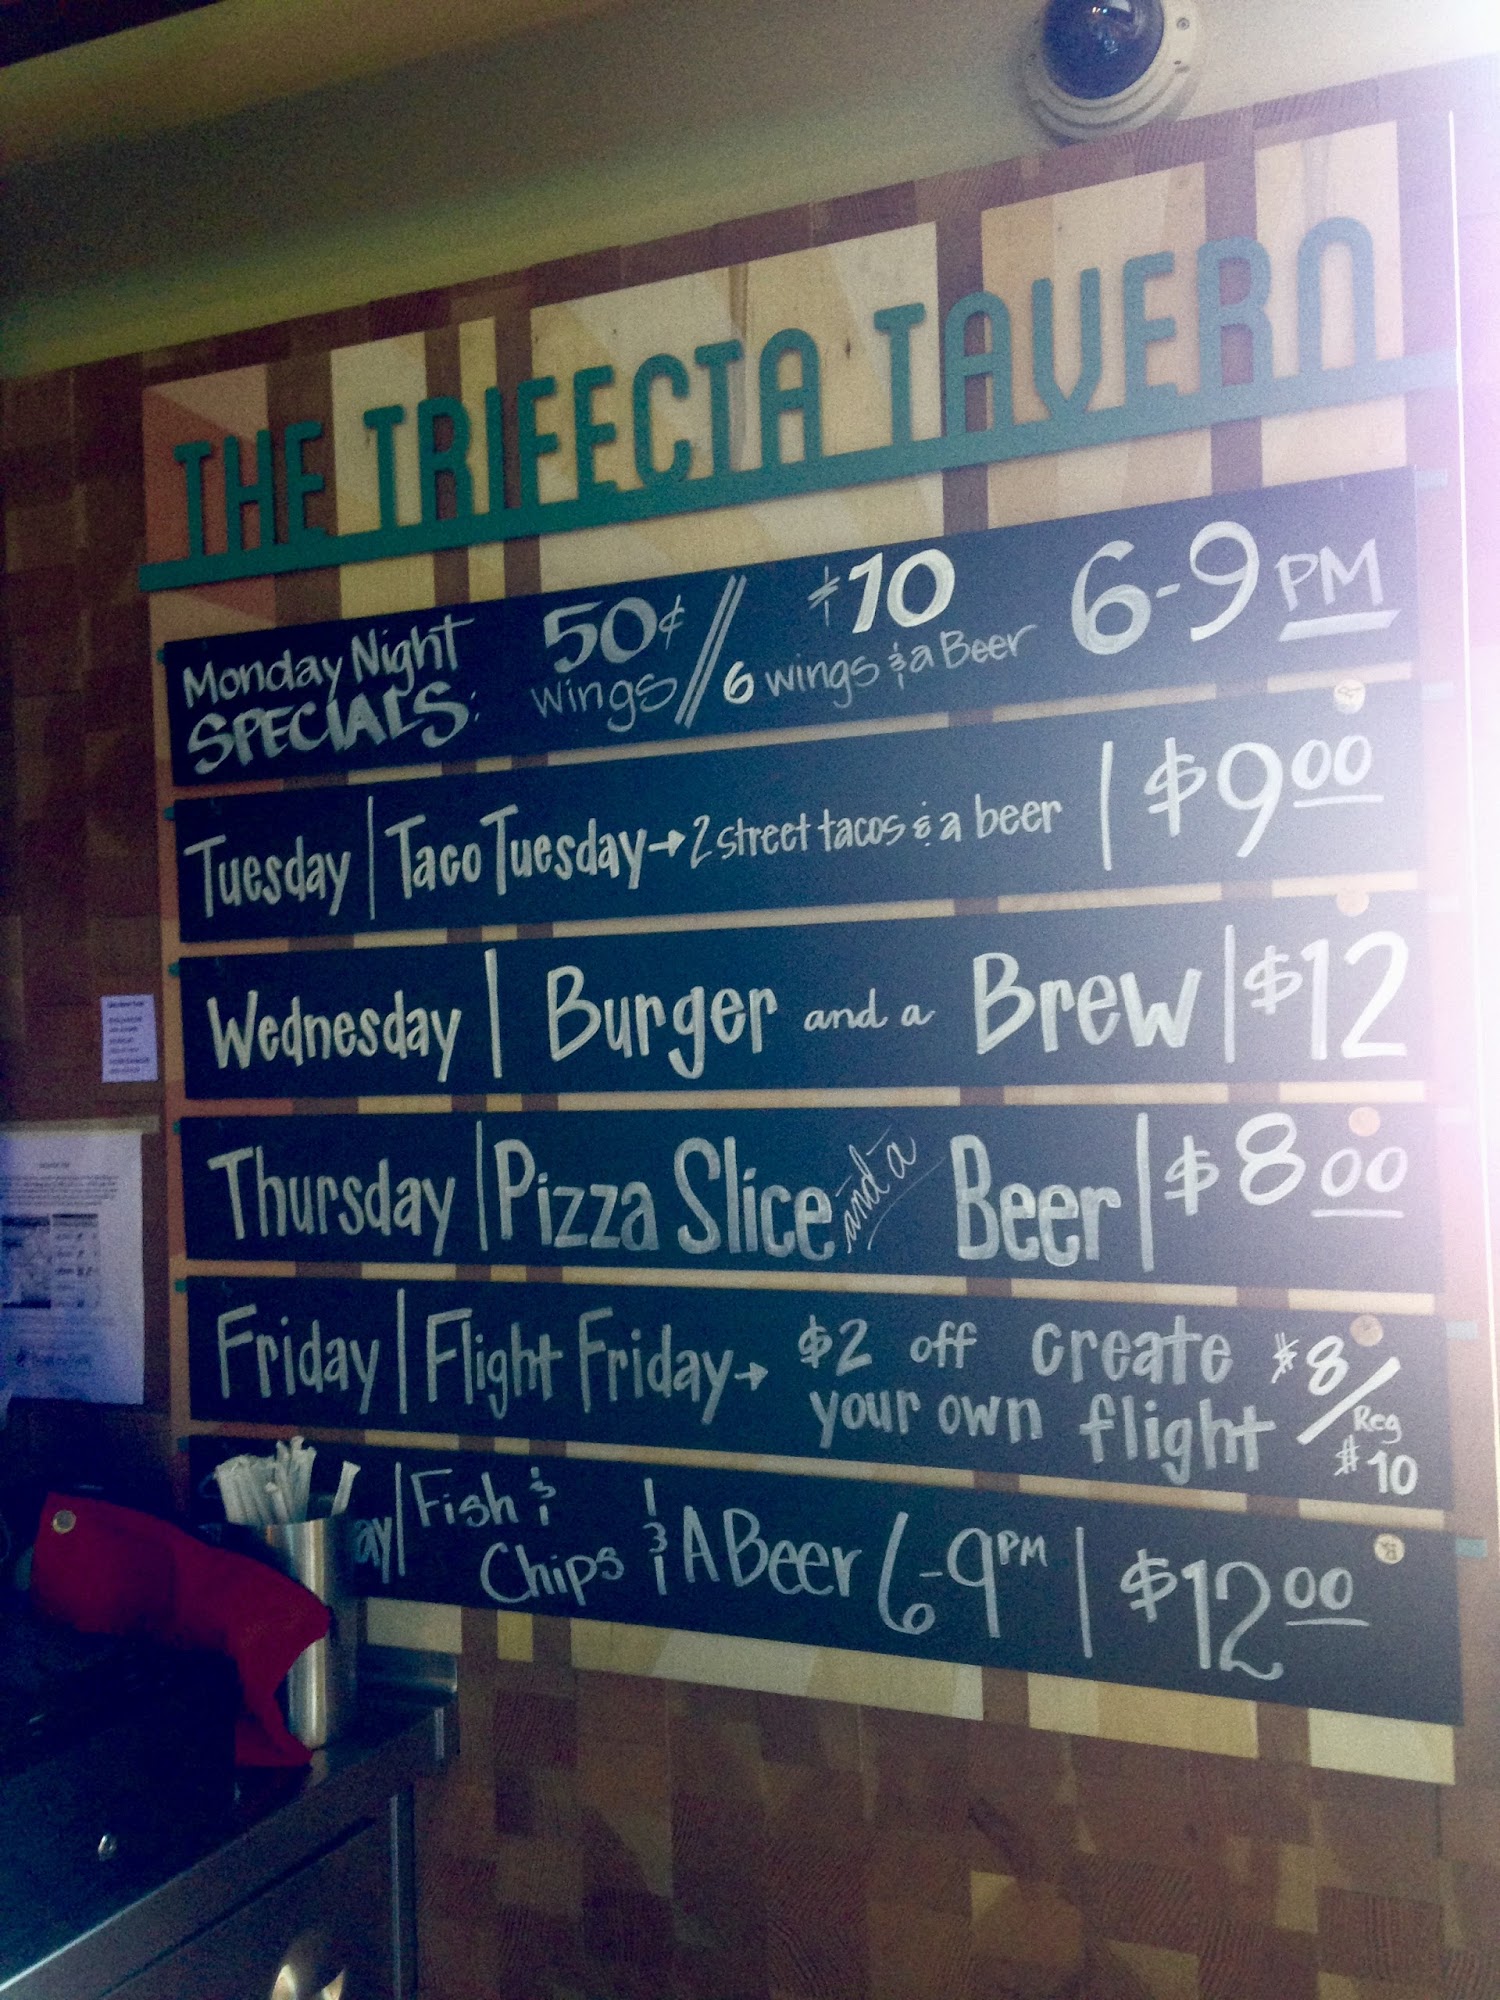 THE TRIFECTA TAVERN
Monday Night SPECIALS: 50¢ wings // $10 6 wings & a Beer 6-9 PM
Tuesday | Taco Tuesday → 2 street tacos & a beer | $9.00
Wednesday | Burger and a Brew | $12
Thursday | Pizza Slice and a Beer | $8.00
Friday | Flight Friday → $2 off create your own flight $8 / Reg $10
ay | Fish & Chips & A Beer 6-9 PM | $12.00